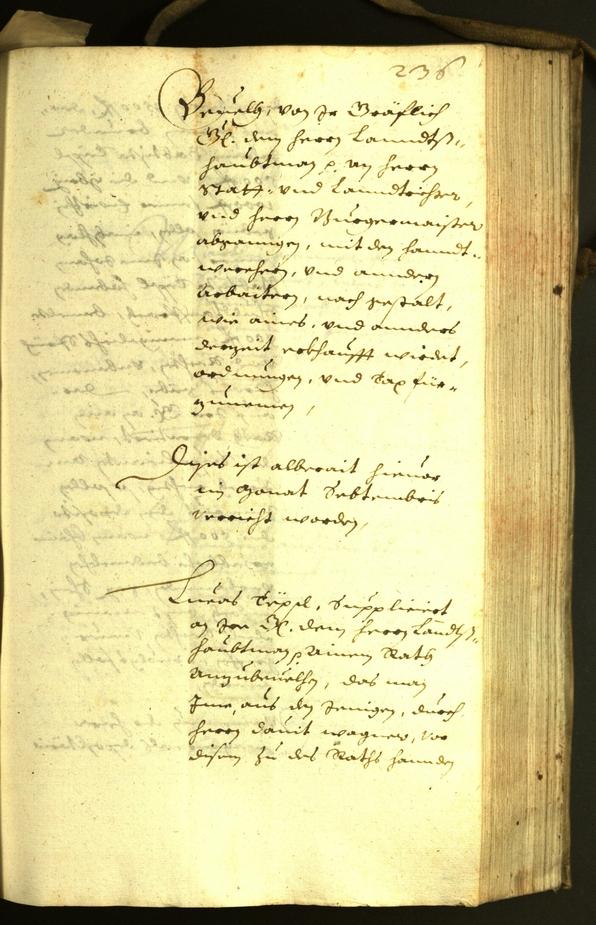 236
Beuelh, von Ir Gräflich
G. dem herrn Lanndtß-
haubtman an herrn
Statt- vnd Lanndtrichter,
vnd herrn Burgermaister
abganngen, mit den hanndt-
werchern, vnd anndern
Arbaitern, nach gestalt,
wie aines, vnd annders
derzeit erkhaufft wierdet,
ordnungen, vnd Tax für-
zunemen,
Dises ist alberait hieuor
im Monat Septembris
verricht worden,
Lucas Suppliciert
an Ire G. dem herrn Landtß-
haubtman ainem Rath
Anzubeuelhen, das man
Ime, aus den Jenigen, durch
herrn Dauit wagner, vor
disem zu des Raths hannden